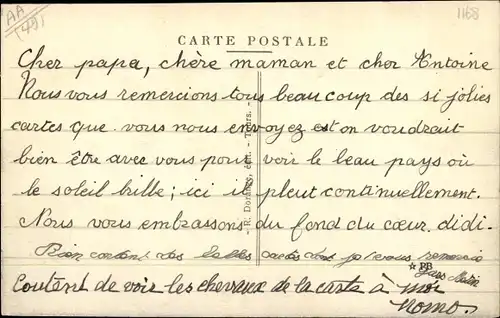 AA
(49)
1168
CARTE POSTALE
Cher papa, chère maman et cher Antoine
Nous vous remercions tous beaucoup des si jolies
cartes que vous nous envoyez est on voudrait
bien être avec vous pour voir le beau pays où
le soleil brille; ici il pleut continuellement.
Nous vous embrassons du fond du cœur. didi.
Bien content des belles cartes je vous remercie
Contant de voir les chevaux de la carte à moi
Momo.
R. Dorange, édit. - Tours.
★ BB